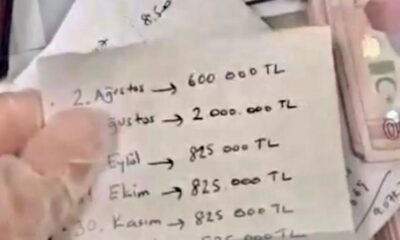 850
2. Ağustos → 600 000 TL
ğustos → 2.000.000 TL
Eylül → 825 000 TL
Ekim → 825.000 TL
30. Kasım → 825 000 TL